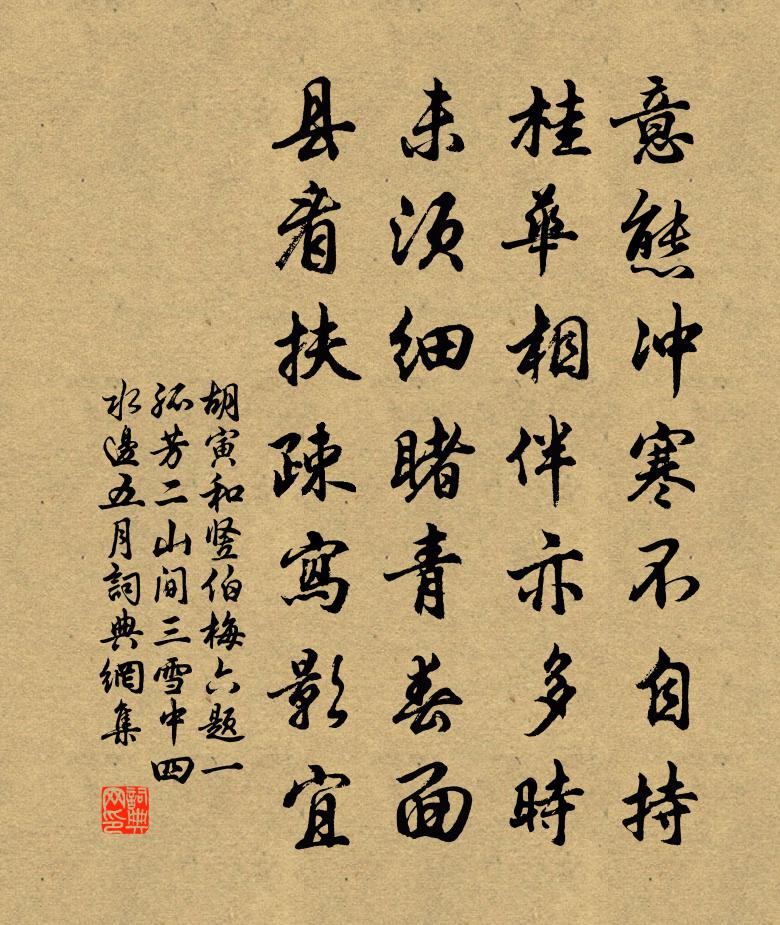 意態冲寒不自持
桂華相伴亦多時
未須細睹青春面
且看扶疎寫影宜
胡寅和竪伯梅六題一
孤芳二山间三雪中四
水邊五月詞典網集
詞典网印